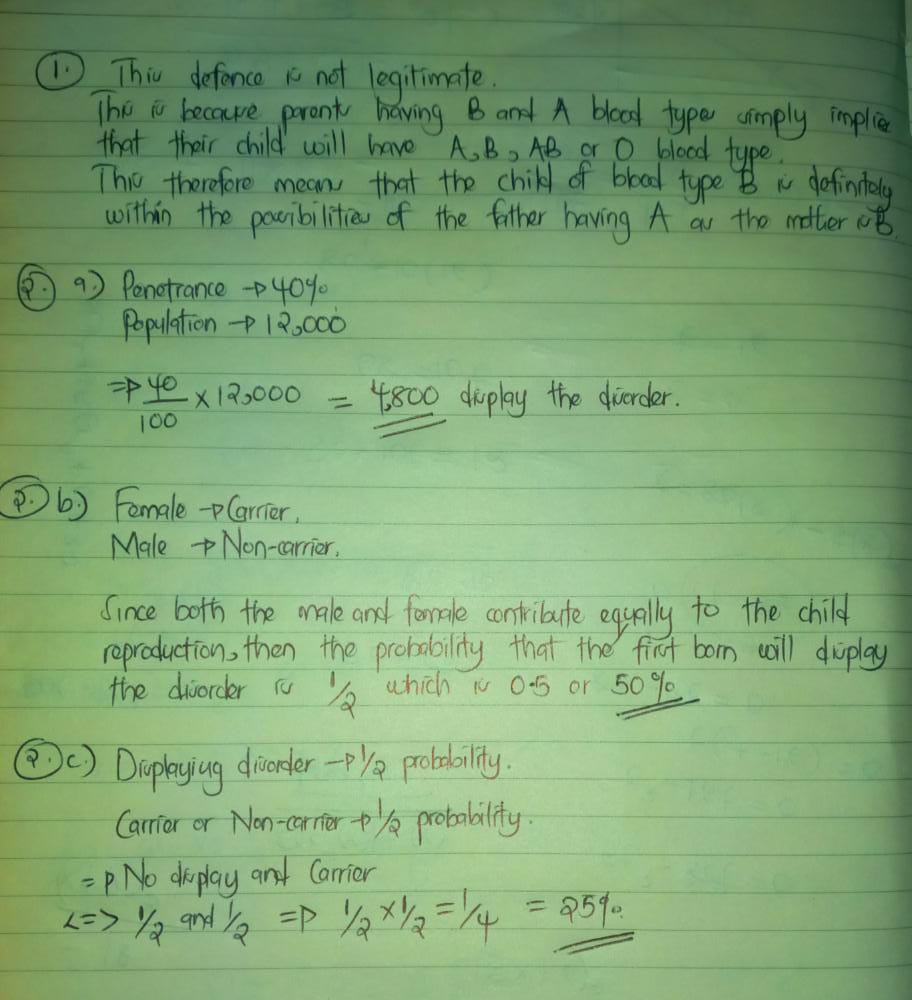 1. This defence is not legitimate.
This is because parents having B and A blood type simply implies
that their child will have A, B, AB or O blood type.
This therefore means that the child of blood type B is definitely
within the possibilities of the father having A as the mother is B.
2. a.) Penetrance → 40%
Population → 12,000
⇒ 40/100 × 12,000 = 4,800 display the disorder.
2. b.) Female → Carrier.
Male → Non-carrier.
Since both the male and female contribute equally to the child
reproduction, then the probability that the first born will display
the disorder is 1/2 which is 0.5 or 50%
2. c.) Displaying disorder → 1/2 probability.
Carrier or Non-carrier → 1/2 probability.
⇒ No display and Carrier
<=> 1/2 and 1/2 ⇒ 1/2 × 1/2 = 1/4 = 25%.